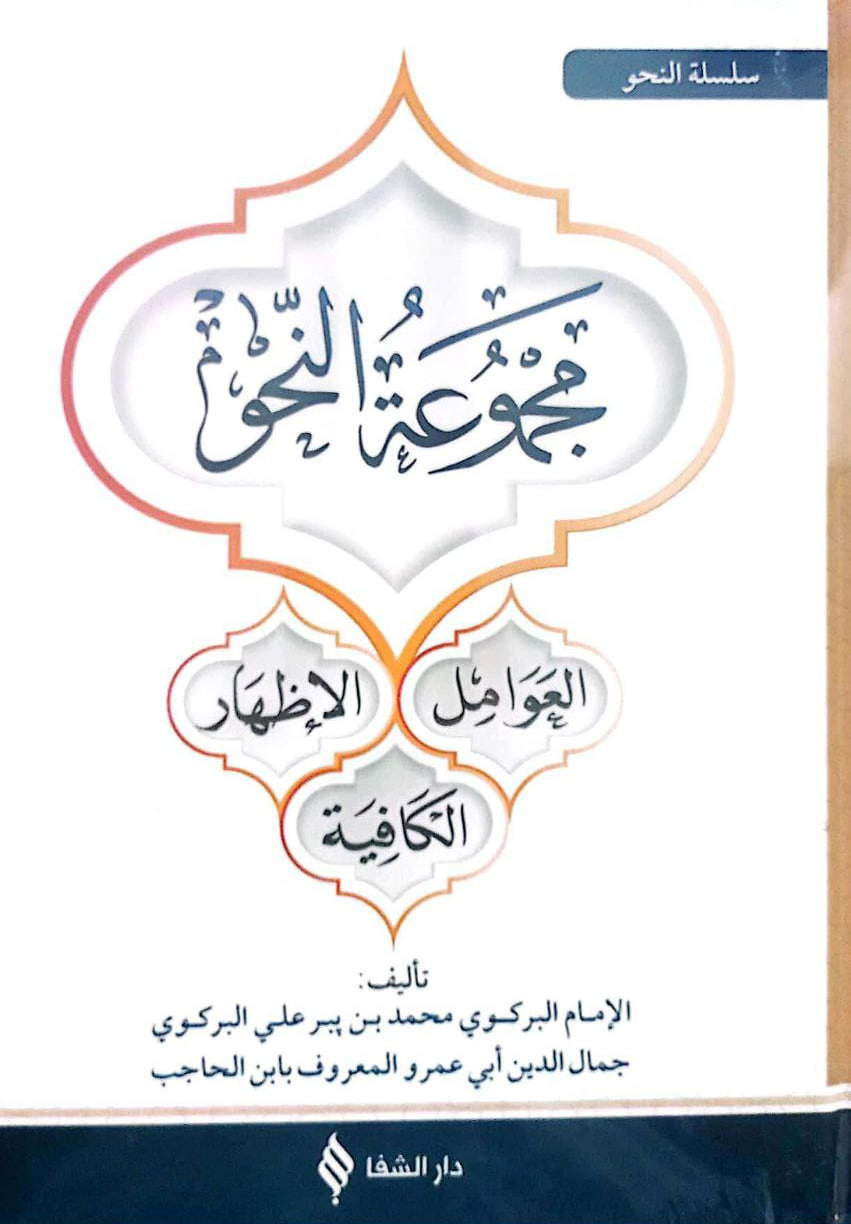 سلسلة النحو
مَجْمُوعَةُ النَّحْوْ
العَوَامِل
الإظهَار
الكَافِيَة
تأليف:
الإمام البركوي محمد بن پير علي البركوي
جمال الدين أبي عمرو المعروف بابن الحاجب
دار الشفا